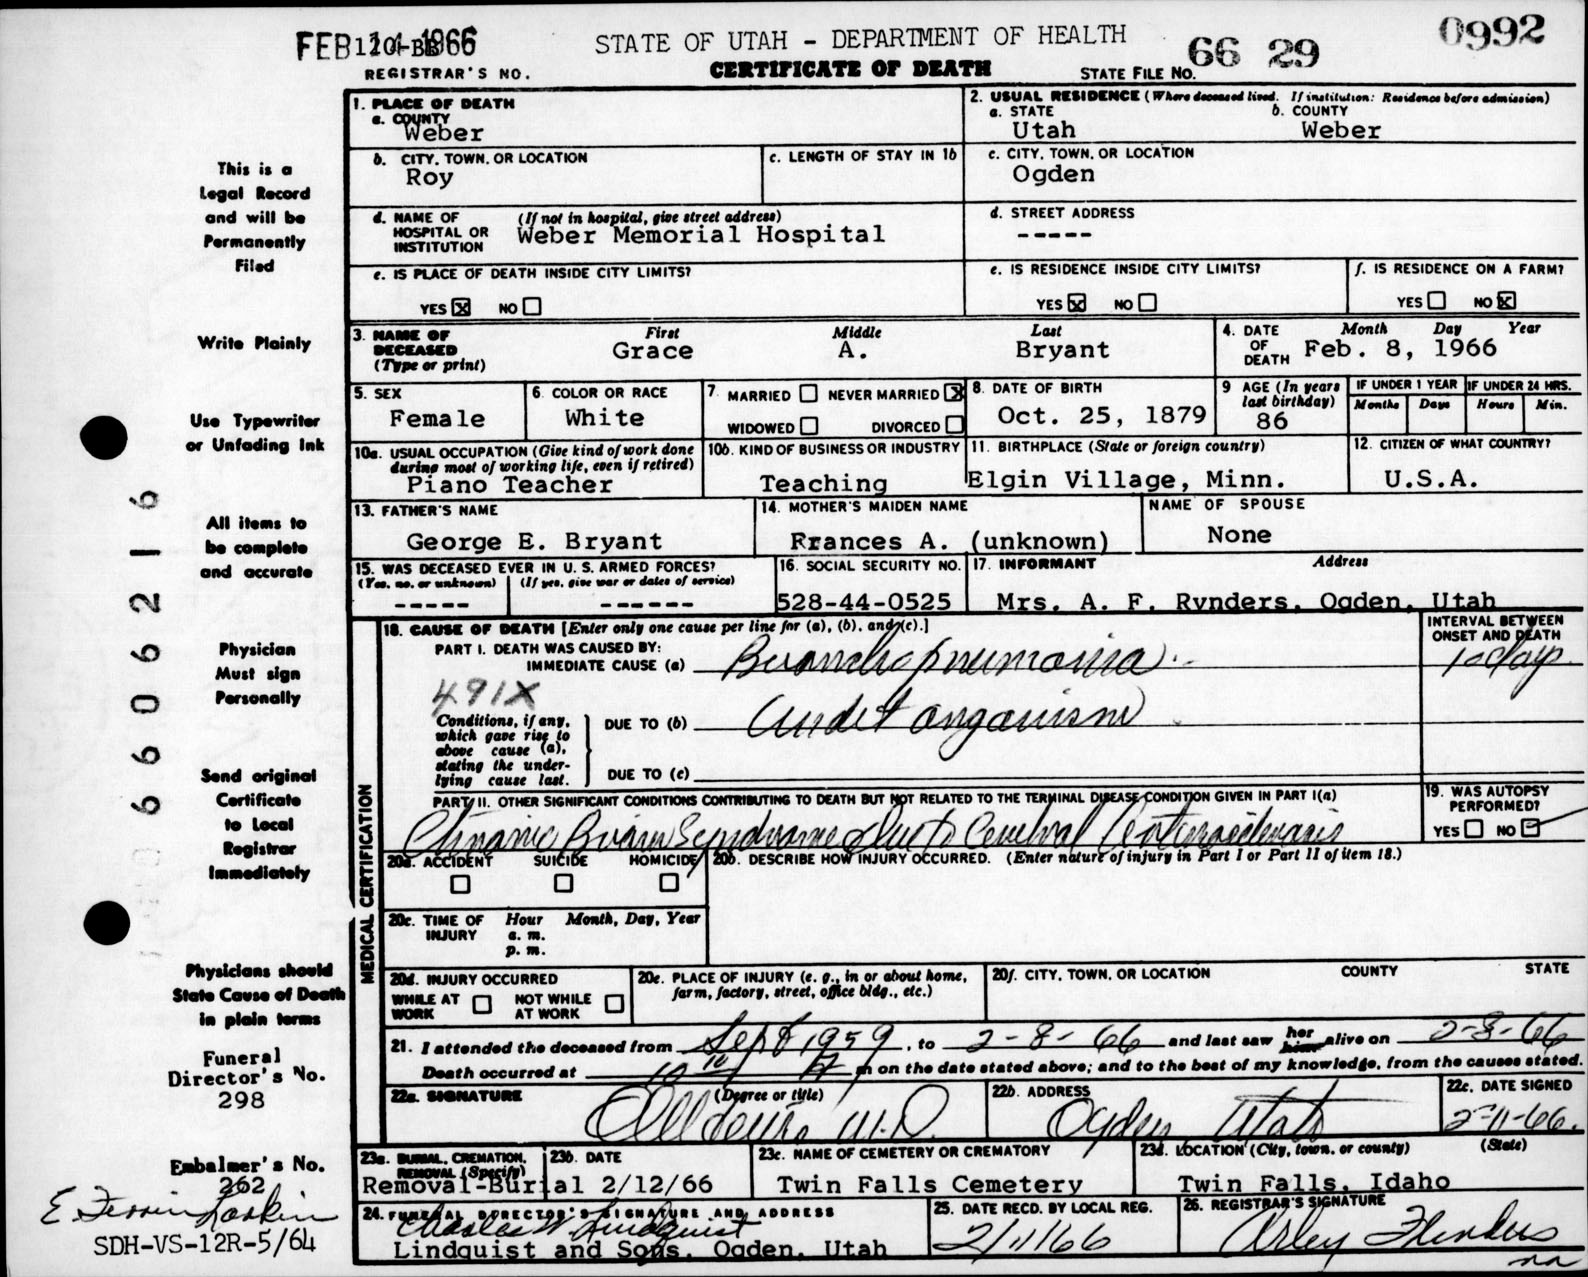 STATE OF UTAH - DEPARTMENT OF HEALTH
66 29
0992
REGISTRAR'S NO.
CERTIFICATE OF DEATH
STATE FILE NO.
1. PLACE OF DEATH
a. COUNTY
Weber
2. USUAL RESIDENCE (Where deceased lived. If institution: Residence before admission)
a. STATE
Utah
b. COUNTY
Weber
b. CITY, TOWN, OR LOCATION
Roy
c. LENGTH OF STAY IN 1b
c. CITY, TOWN, OR LOCATION
Ogden
d. NAME OF HOSPITAL OR INSTITUTION
(If not in hospital, give street address)
Weber Memorial Hospital
d. STREET ADDRESS
-----
e. IS PLACE OF DEATH INSIDE CITY LIMITS?
YES X NO
e. IS RESIDENCE INSIDE CITY LIMITS?
YES X NO
f. IS RESIDENCE ON A FARM?
YES NO X
3. NAME OF DECEASED
(Type or print)
First
Grace
Middle
A.
Last
Bryant
4. DATE OF DEATH
Month Day Year
Feb. 8, 1966
5. SEX
Female
6. COLOR OR RACE
White
7. MARRIED NEVER MARRIED X
WIDOWED DIVORCED
8. DATE OF BIRTH
Oct. 25, 1879
9 AGE (In years last birthday)
86
IF UNDER 1 YEAR
Months Days
IF UNDER 24 HRS.
Hours Min.
10a. USUAL OCCUPATION (Give kind of work done during most of working life, even if retired)
Piano Teacher
10b. KIND OF BUSINESS OR INDUSTRY
Teaching
11. BIRTHPLACE (State or foreign country)
Elgin Village, Minn.
12. CITIZEN OF WHAT COUNTRY?
U.S.A.
13. FATHER'S NAME
George E. Bryant
14. MOTHER'S MAIDEN NAME
Frances A. (unknown)
NAME OF SPOUSE
None
15. WAS DECEASED EVER IN U. S. ARMED FORCES?
(Yes, no, or unknown) (If yes, give war or dates of service)
----- ------
16. SOCIAL SECURITY NO.
528-44-0525
17. INFORMANT Address
Mrs. A. F. Rynders, Ogden, Utah
MEDICAL CERTIFICATION
18. CAUSE OF DEATH [Enter only one cause per line for (a), (b), and (c).]
INTERVAL BETWEEN ONSET AND DEATH
PART I. DEATH WAS CAUSED BY:
IMMEDIATE CAUSE (a) Bronchopneumonia
10 days
491X
Conditions, if any, which gave rise to above cause (a), stating the underlying cause last.
DUE TO (b) Undet organism
DUE TO (c)
PART II. OTHER SIGNIFICANT CONDITIONS CONTRIBUTING TO DEATH BUT NOT RELATED TO THE TERMINAL DISEASE CONDITION GIVEN IN PART I(a)
Chronic Brain Syndrome due to Cerebral Arteriosclerosis
19. WAS AUTOPSY PERFORMED?
YES NO
20a. ACCIDENT SUICIDE HOMICIDE
20b. DESCRIBE HOW INJURY OCCURRED. (Enter nature of injury in Part I or Part II of item 18.)
20c. TIME OF INJURY
Hour Month, Day, Year
a. m.
p. m.
20d. INJURY OCCURRED
WHILE AT WORK NOT WHILE AT WORK
20e. PLACE OF INJURY (e. g., in or about home, farm, factory, street, office bldg., etc.)
20f. CITY, TOWN, OR LOCATION COUNTY STATE
21. I attended the deceased from Sept 1959, to 2-8-66 and last saw her him alive on 2-8-66
Death occurred at 10 10 m on the date stated above; and to the best of my knowledge, from the causes stated.
22a. SIGNATURE (Degree or title)
M.D.
22b. ADDRESS
Ogden Utah
22c. DATE SIGNED
2-11-66.
23a. BURIAL, CREMATION, REMOVAL (Specify)
Removal-Burial
23b. DATE
2/12/66
23c. NAME OF CEMETERY OR CREMATORY
Twin Falls Cemetery
23d. LOCATION (City, town, or county) (State)
Twin Falls, Idaho
24. FUNERAL DIRECTOR'S SIGNATURE AND ADDRESS
Charles W Lindquist
Lindquist and Sons, Ogden, Utah
25. DATE RECD. BY LOCAL REG.
2/11/66
26. REGISTRAR'S SIGNATURE
This is a
Legal Record
and will be
Permanently
Filed
Write Plainly
Use Typewriter
or Unfading Ink
All items to
be complete
and accurate
Physician
Must sign
Personally
Send original
Certificate
to Local
Registrar
Immediately
Physicians should
State Cause of Death
in plain terms
Funeral
Director's No.
298
Embalmer's No.
262
E. Ferrin Larkin
SDH-VS-12R-5/64
6606216